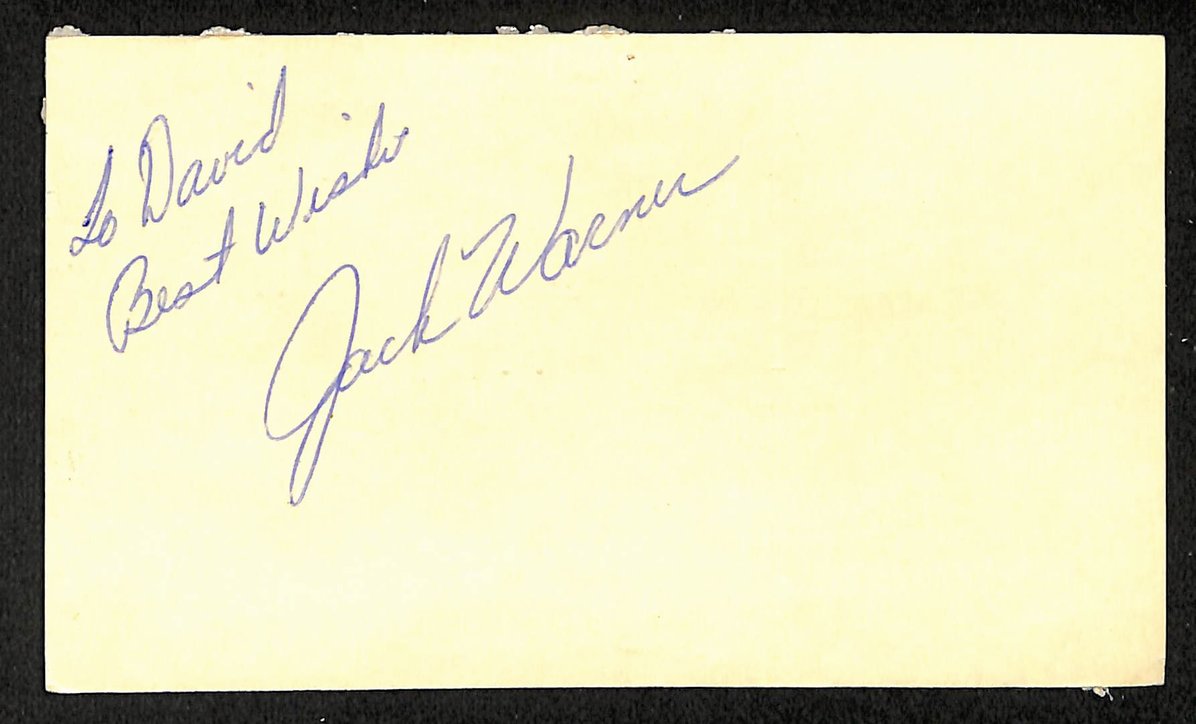 To David
Best Wishes
Jack Warner